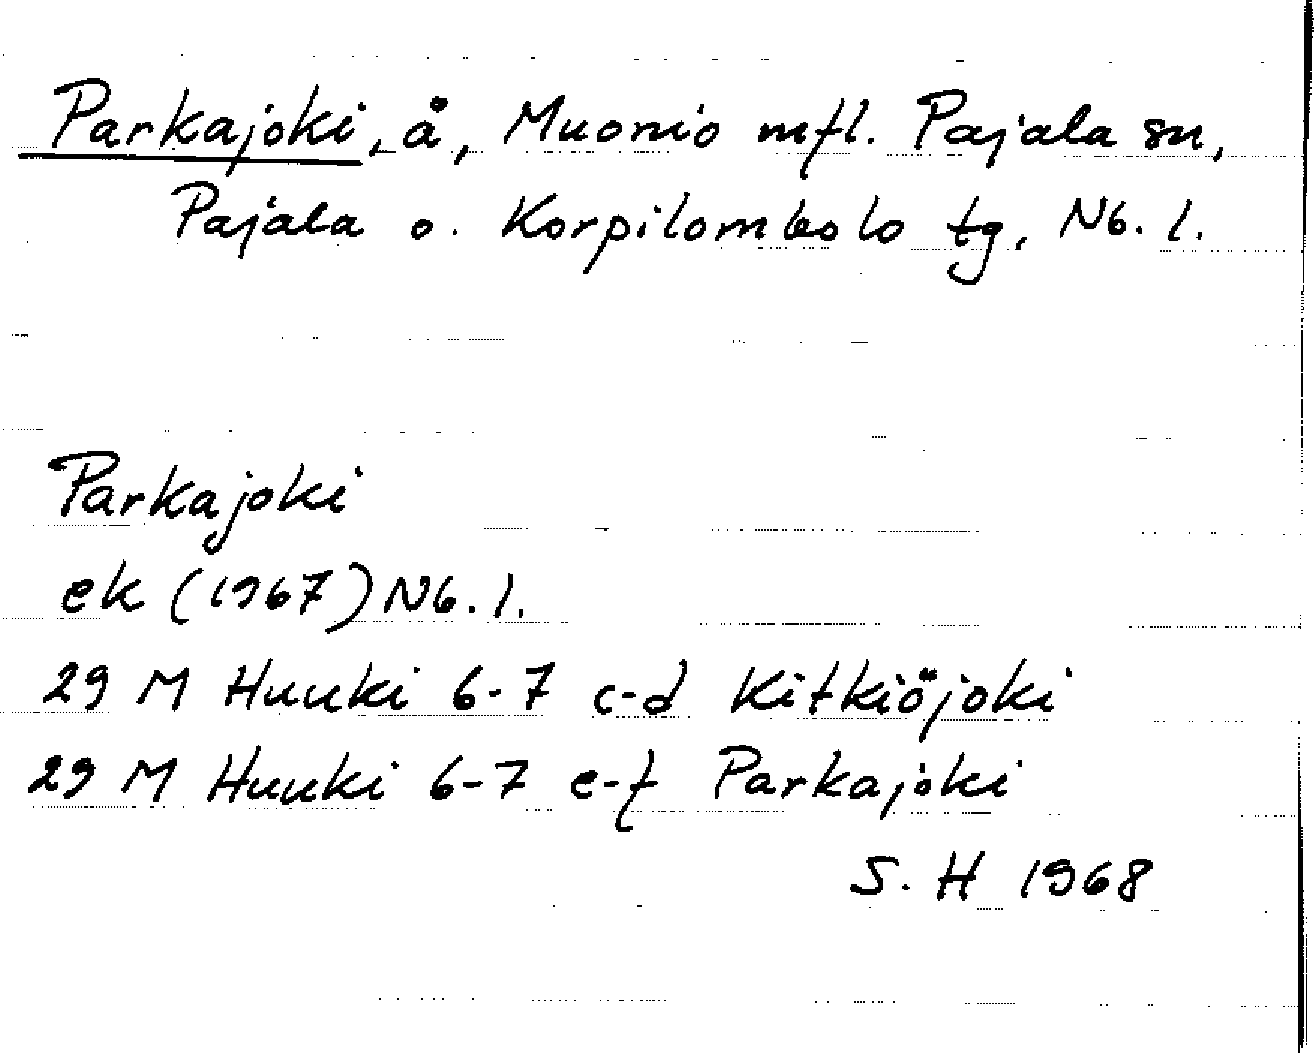 Parkajoki, å, Muonio mfl. Pajala sn,
Pajala o. Korpilombolo tg, Nb. l.
Parkajoki
ek (1967) Nb. l.
29 M Huuki 6-7 c-d Kitkiöjoki
29 M Huuki 6-7 e-f Parkajoki
S. H 1968